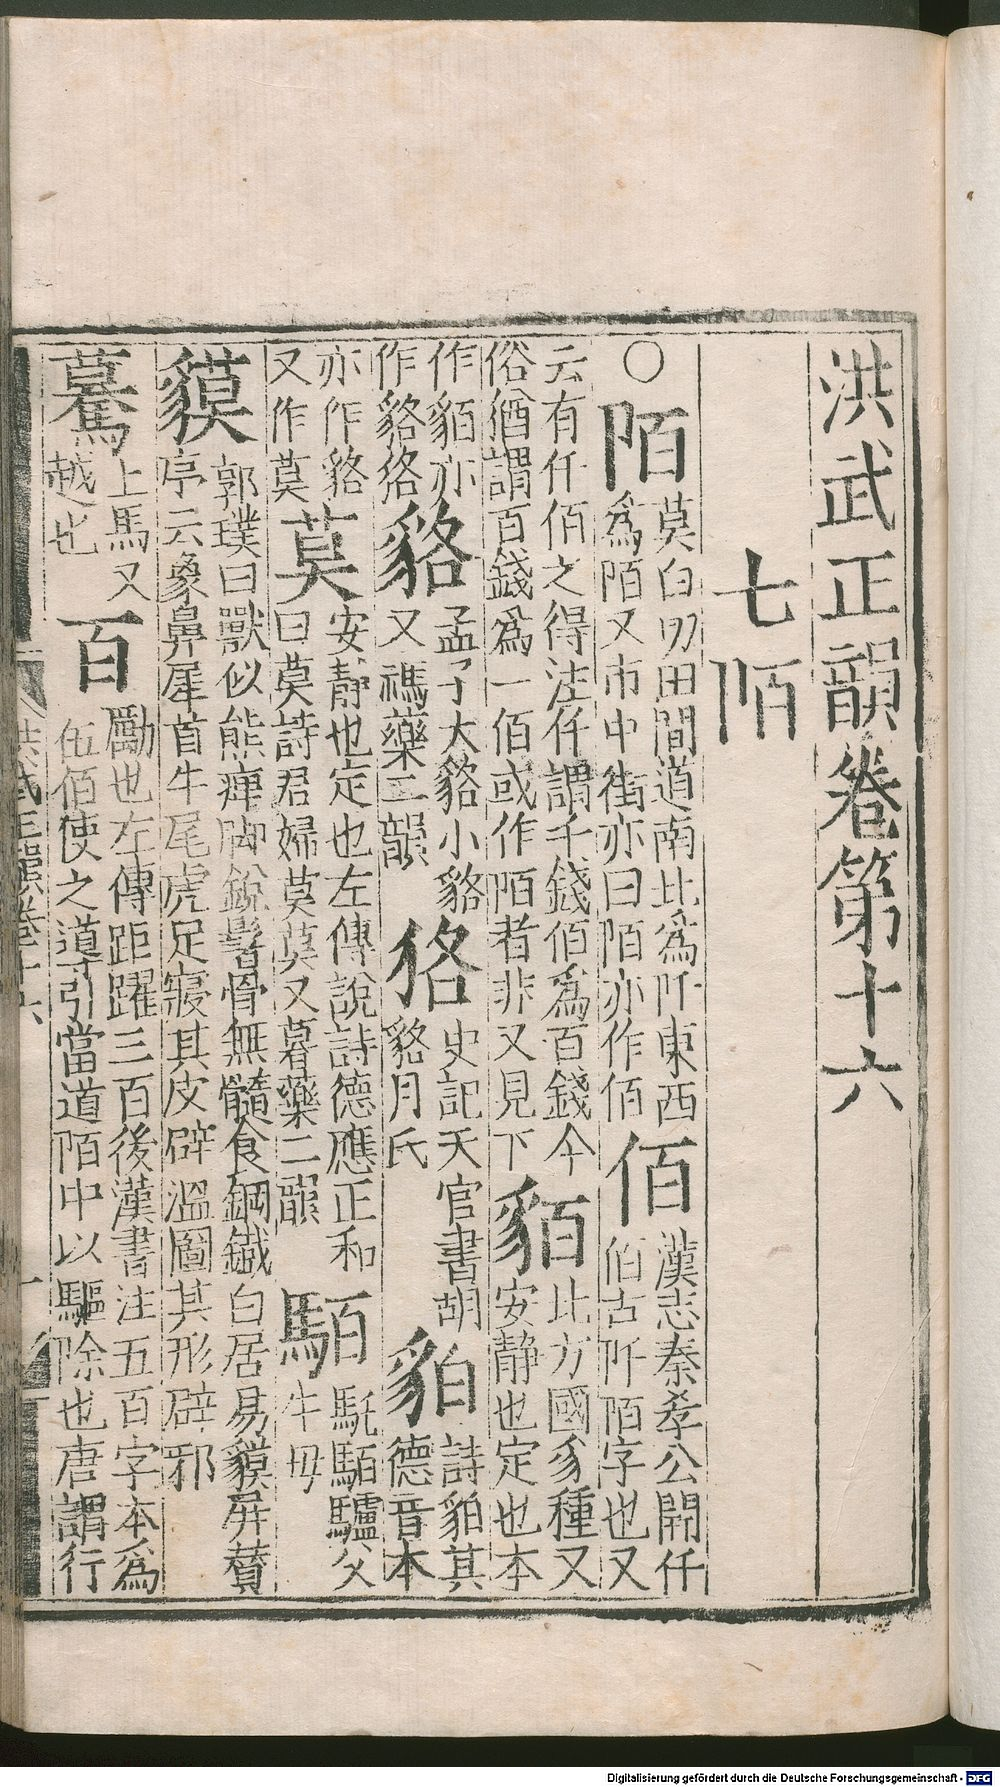 洪武正韻卷第十六
七陌
○陌莫白切田間道南北爲阡東西
爲陌又市中街亦曰陌亦作佰
佰漢志秦孝公開仟
佰古阡陌字也又
云有仟佰之得注仟謂千錢佰爲百錢今
俗猶謂百錢爲一佰或作陌者非又見下
貊北方國豸種又
安靜也定也本
作貊亦
作貉狢
貉孟子大貉小貉
又禡藥二韻
狢史記天官書胡
貉月氏
貃詩貃其
德音本
亦作貉
又作莫
莫安靜也定也左傳說詩德應正和
曰莫詩君婦莫莫又暮藥二韻
駬馲駬驢父
牛母
貘郭璞曰獸似熊痺脚銳髻骨無髓食鋼鐵白居易貘屏贊
序云象鼻犀首牛尾虎足寢其皮辟溫圖其形辟邪
驀上馬又
越也
百勵也左傳距躍三百後漢書注五百字本爲
伍佰使之導引當道陌中以驅除也唐謂行
洪武正韻卷十六
一
Digitalisierung gefördert durch die Deutsche Forschungsgemeinschaft - DFG